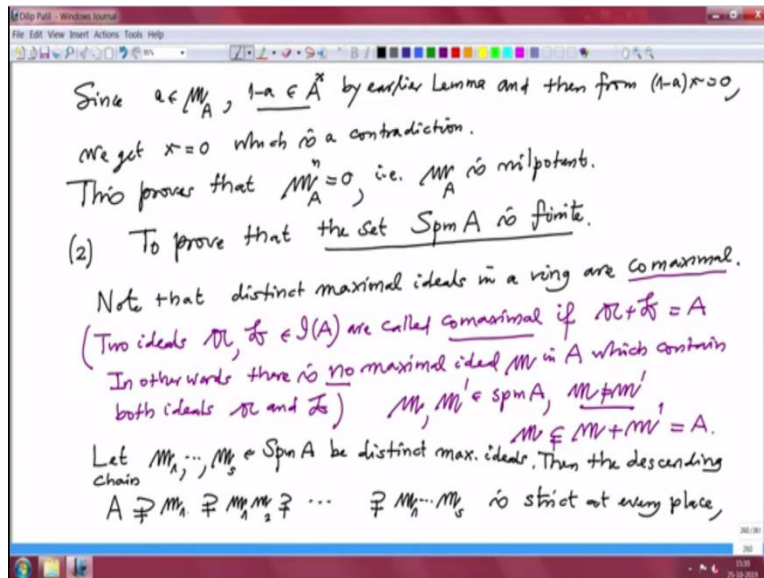 Dilip Patil - Windows Journal
File Edit View Insert Actions Tools Help
Since a ∈ 𝔪_A, 1-a ∈ A^× by earlier Lemma and then from (1-a)x=0,
we get x=0 which is a contradiction.
This proves that 𝔪_A^n = 0, i.e. 𝔪_A is nilpotent.
(2) To prove that the set Spm A is finite.
Note that distinct maximal ideals in a ring are comaximal.
(Two ideals 𝔞, 𝔟 ∈ 𝓘(A) are called comaximal if 𝔞+𝔟 = A
In other words there is no maximal ideal 𝔪 in A which contain
both ideals 𝔞 and 𝔟) 𝔪, 𝔪' ∈ Spm A, 𝔪 ≠ 𝔪'
𝔪 ⊊ 𝔪 + 𝔪' = A.
Let 𝔪_1, ..., 𝔪_s ∈ Spm A be distinct max. ideals. Then the descending
chain
A ⊋ 𝔪_1 ⊋ 𝔪_1 𝔪_2 ⊋ ... ⊋ 𝔪_1 ... 𝔪_s is strict at every place,
260/261
260
15:30
25-10-2019